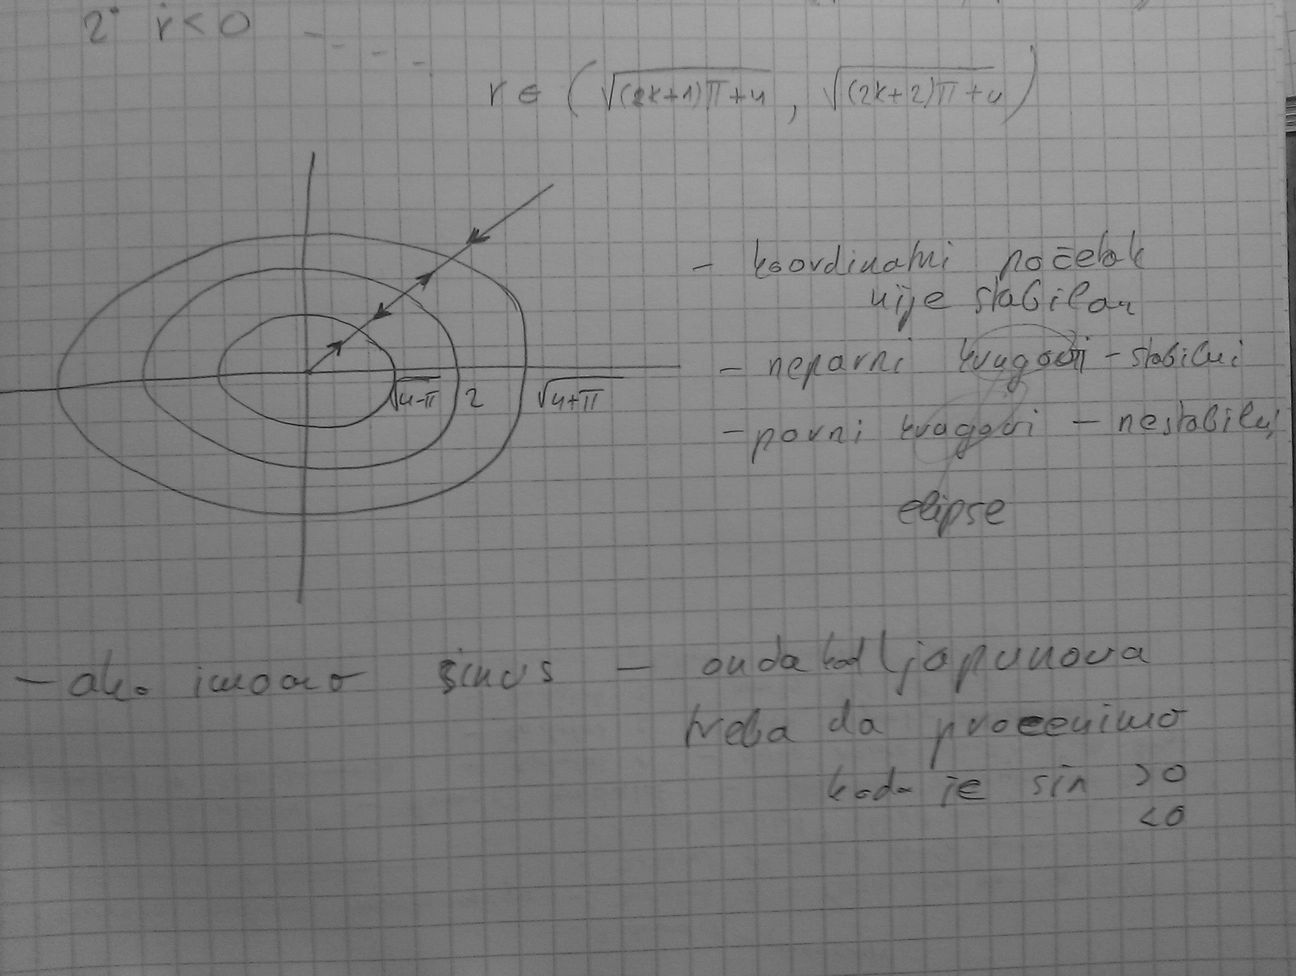 2° ṙ < 0 - - - -
r ∈ (√((2k+1)π+4) , √((2k+2)π+4))
- koordinatni početak
nije stabilan
- neparni krugovi - stabilni
- parni krugovi - nestabilni
elipse
√(4-π) 2 √(4+π)
- ako imamo sinus - onda kod Ljapunova
treba da procenimo
kada je sin > 0
< 0